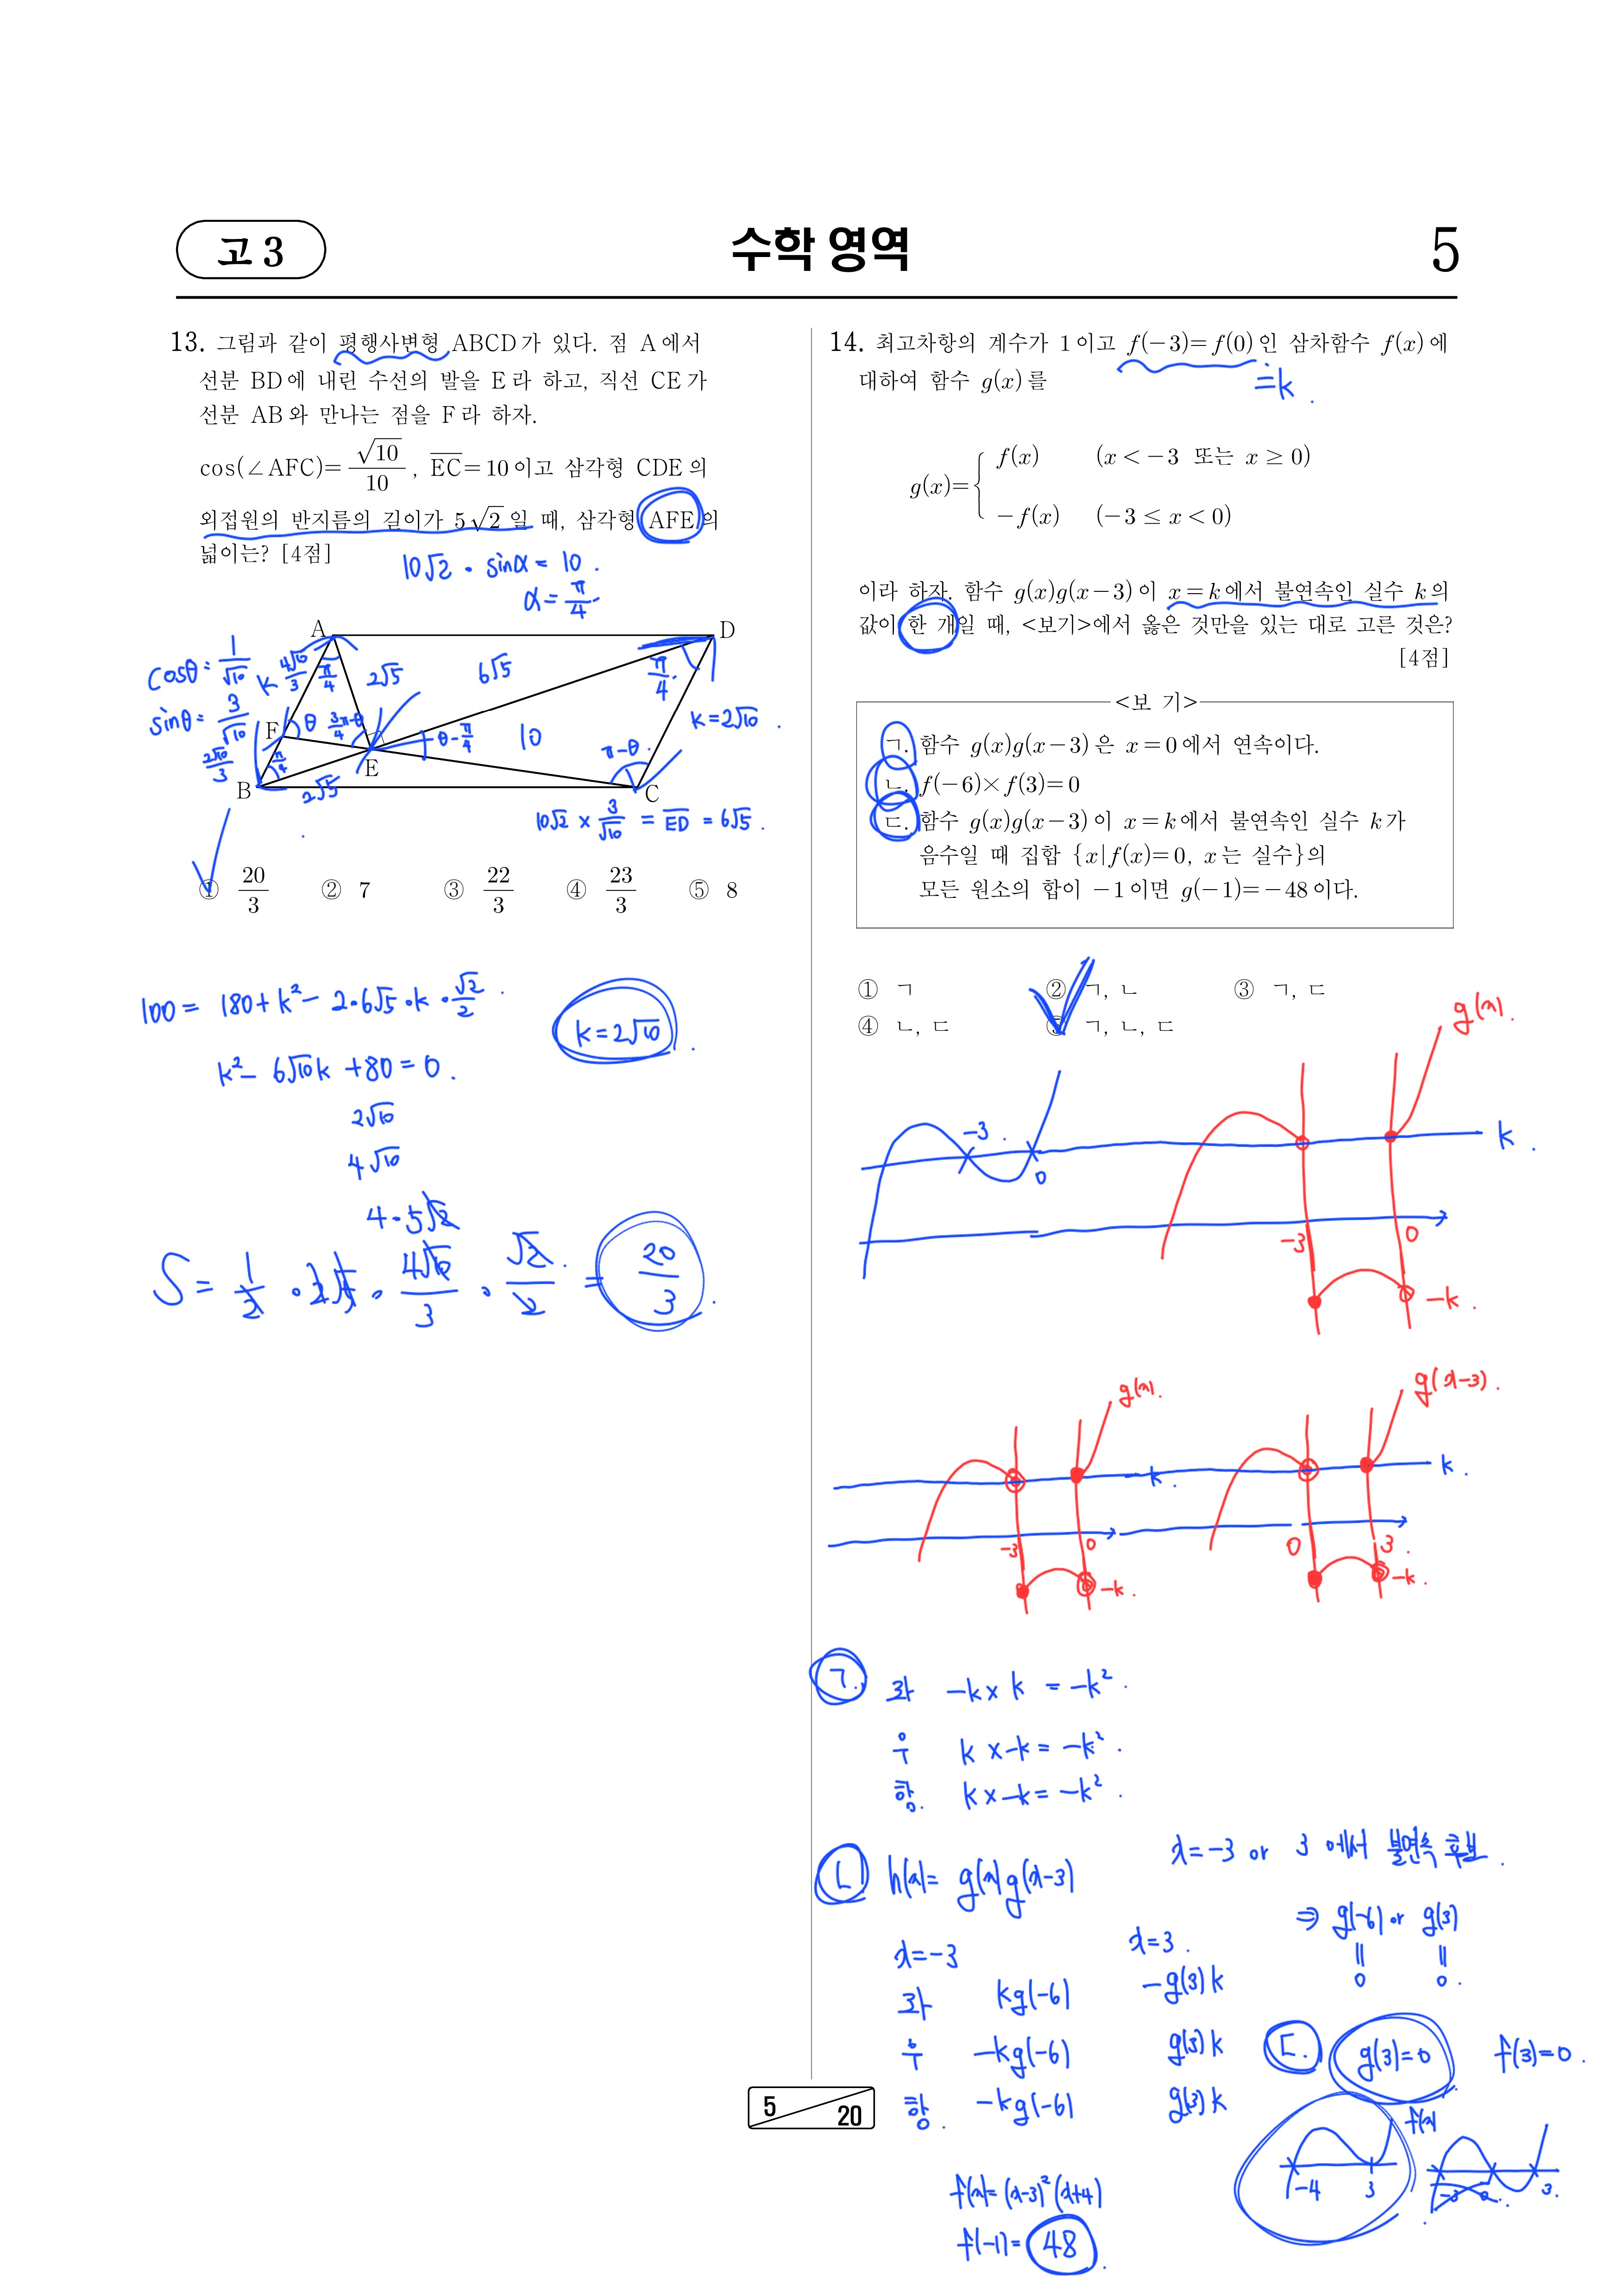 고 3
수학 영역
5
13. 그림과 같이 평행사변형 ABCD가 있다. 점 A에서
선분 BD에 내린 수선의 발을 E라 하고, 직선 CE가
선분 AB와 만나는 점을 F라 하자.
cos(∠AFC)=√10/10, EC=10이고 삼각형 CDE의
외접원의 반지름의 길이가 5√2일 때, 삼각형 AFE의
넓이는? [4점]
10√2 · sinα = 10.
α = π/4
A
D
cosθ = 1/√10
sinθ = 3/√10
K
4√10/3
π/4
2√5
6√5
π/4
k=2√10
F
θ
3/4π-θ
θ-π/4
10
π-θ
2√10/3
π/4
B
E
2√5
C
10√2 × 3/√10 = ED = 6√5.
① 20/3 ② 7 ③ 22/3 ④ 23/3 ⑤ 8
100 = 180+k²- 2·6√5·k·√2/2.
k=2√10.
k²- 6√10k +80 = 0.
2√10
4√10
4·5√2
S = 1/2 · 2√5 · 4√10/3 · √2/2 = 20/3.
14. 최고차항의 계수가 1이고 f(-3)=f(0)인 삼차함수 f(x)에
=k.
대하여 함수 g(x)를
g(x)={ f(x) (x<-3 또는 x≥0)
-f(x) (-3≤x<0)
이라 하자. 함수 g(x)g(x-3)이 x=k에서 불연속인 실수 k의
값이 한 개일 때, <보기>에서 옳은 것만을 있는 대로 고른 것은?
[4점]
<보 기>
ㄱ. 함수 g(x)g(x-3)은 x=0에서 연속이다.
ㄴ. f(-6)×f(3)=0
ㄷ. 함수 g(x)g(x-3)이 x=k에서 불연속인 실수 k가
음수일 때 집합 {x|f(x)=0, x는 실수}의
모든 원소의 합이 -1이면 g(-1)=-48이다.
① ㄱ ② ㄱ, ㄴ ③ ㄱ, ㄷ
④ ㄴ, ㄷ ⑤ ㄱ, ㄴ, ㄷ
g(x).
-3
0
k.
-3
0
-k.
g(x).
g(x-3).
k.
k.
-3
0
0
3.
-k.
-k.
ㄱ. 좌 -k×k = -k².
우 k×-k = -k².
함. k×-k = -k².
ㄴ. h(x)= g(x)g(x-3)
x=-3 or 3 에서 불연속 후보.
⇒ g(-6) or g(3)
0 0.
x=-3
x=3.
좌 kg(-6) -g(3)k
우 -kg(-6) g(3)k
함. -kg(-6) g(3)k
ㄷ. g(3)=0 f(3)=0.
f(x)
-4 3
-3 0 3.
f(x)=(x-3)²(x+4)
f(-1)=48.
5
20